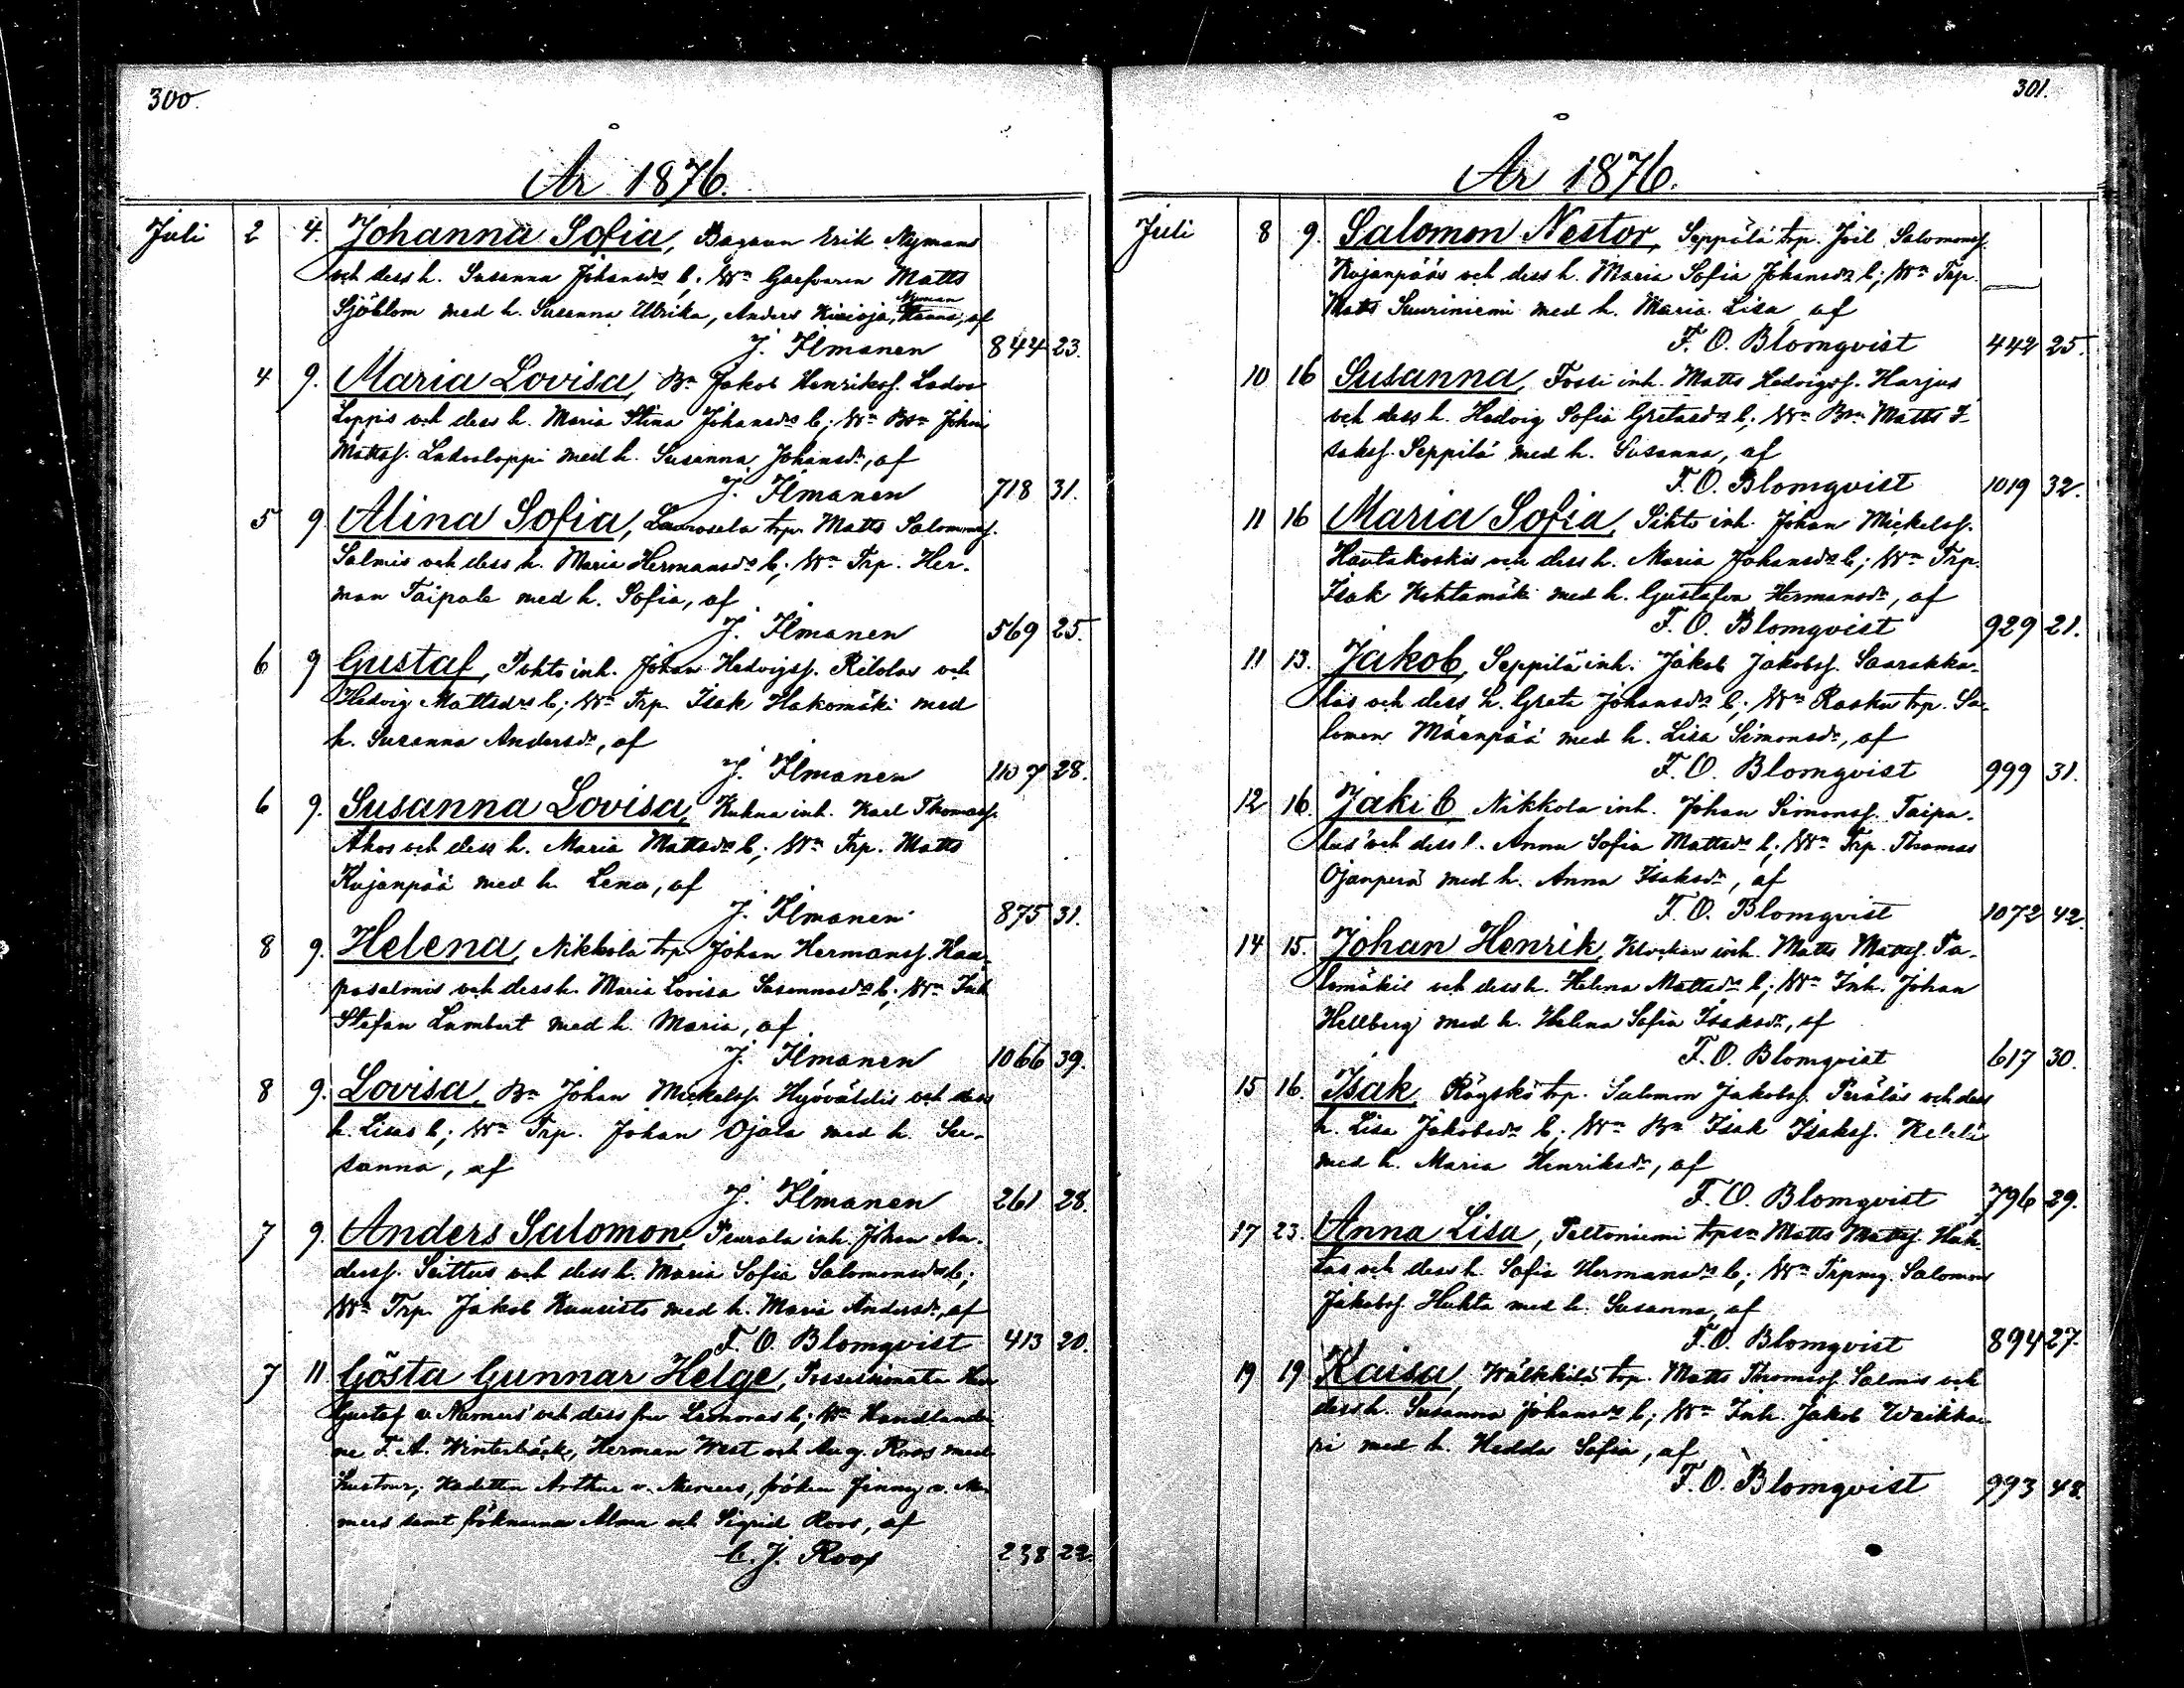 300.
År 1876.
Juli 2 4. Johanna Sofia, Bagaren Erik Nymans
och dess h. Susanna Johansdrs b; Wn Garfvaren Matts
Sjöblom med h. Susanna Ulrika, Anders Nyman, af
J. Ilmanen 844 23.
4 9. Maria Lovisa, Bn Jakob Henrikss. Ladva
Loppis och dess h. Maria Stina Johansdrs b; Wn Bn Johan
Mattss. Ladvaloppi med h. Susanna Johansdr, af
J. Ilmanen 718 31.
5 9. Alina Sofia, Laurosela trp. Matts Salomonss.
Salmis och dess h. Maria Hermansdrs b; Wn Trp. Her-
man Taipale med h. Sofia, af
J. Ilmanen 569 25.
6 9 Gustaf, inh. Johan Hedvigss. och
Hedvig Mattsdrs b; Wn Trp. Isak Hakomäki med
h. Susanna Andersdr, af
J. Ilmanen 1107 28.
6 9. Susanna Lovisa, Kuhna inh. Karl Thomass.
Ahos och dess h. Maria Mattsdrs b; Wn Trp. Matts
Kujanpää med h. Lena, af
J. Ilmanen 875 31.
8 9. Helena, Nikkola trp. Johan Hermanss. Haa-
pasalmis och dess h. Maria Lovisa Susannasdrs b; Wn Inh.
Stefan Lambert med h. Maria, af
J. Ilmanen 1066 39.
8 9. Lovisa, Bn Johan Mickelss. Hyöväldis och dess
h. Lisas b; Wn Trp. Johan Ojala med h. Su-
sanna, af
J. Ilmanen 261 28.
7 9. Anders Salomon, Peurala inh. Johan An-
derss. Seittus och dess h. Maria Sofia Salomonsdrs b;
Wn Trp. Jakob Kuusisto med h. Maria Andersdr, af
F. O. Blomqvist 413 20.
7 11 Gösta Gunnar Helge, Possessionaten Herr
Gustaf v. Nemers' och dess fru b; Wn Handlande-
ne F. A. Winterbäck, Herman West och Aug. Roos med
fruar, Kadetten Arthur v. Nemers, fröken Jinny v. Ne-
mers samt fröknarna Alma och Sigrid Roos, af
C. J. Roos 238 22.
301.
År 1876.
Juli 8 9. Salomon Nestor, Seppälä trp. Joel Salomonss.
Kujanpääs och dess h. Maria Sofia Johansdrs b; Wn Trp.
Matts Suuriniemi med h. Maria Lisa af
F. O. Blomqvist 442 25.
10 16 Susanna, Fossi inh. Matts Hedvigss. Harjus
och dess h. Hedvig Sofia Gretasdrs b; Wn Bn Matts I-
sakss. Seppilä med h. Susanna, af
F. O. Blomqvist 1019 32.
11 16 Maria Sofia, inh. Johan Mickelss.
Hautakoskis och dess h. Maria Johansdrs b; Wn Trp.
Isak Kohtamäki med h. Gustafva Hermansdr, af
F. O. Blomqvist 929 21.
11 13. Jakob, Seppilä inh. Jakob Jakobss. Saarakka-
las och dess h. Greta Johansdrs b; Wn Rasku trp. Sa-
lomon Mäenpää med h. Lisa Simonsdr, af
F. O. Blomqvist 999 31.
12 16. Jakob Nikkola inh. Johan Simonss. Taipa-
lus' och dess h. Anna Sofia Mattsdrs b; Wn Trp. Thomas
Ojanperä med h. Anna Isaksdr, af
F. O. Blomqvist 1072 42.
14 15. Johan Henrik, Klockar inh. Matts Mattss. Pa-
lomäkis och dess h. Helena Mattsdrs b; Wn Inh. Johan
Hellberg med h. Helena Sofia Isaksdr, af
F. O. Blomqvist 617 30.
15 16. Isak Rögskö trp. Salomon Jakobss. Peräläs och dess
h. Lisa Jakobsdrs b; Wn Bn Isak Isakss.
med h. Maria Henriksdr, af
F. O. Blomqvist 796 29.
17 23. Anna Lisa, Peltoniemi trpsn Matts Mattss. Huh-
tas och dess h. Sofia Hermansdrs b; Wn Trpmg. Salomon
Jakobss. Huhta med h. Susanna, af
F. O. Blomqvist 894 27.
19 19 Kaisa, Wälkkilä trp. Matts Thomass. Salmis och
dess h. Susanna Johansdrs b; Wn Inh. Jakob Waikka-
ri med h. Hedda Sofia, af
F. O. Blomqvist 993 48.